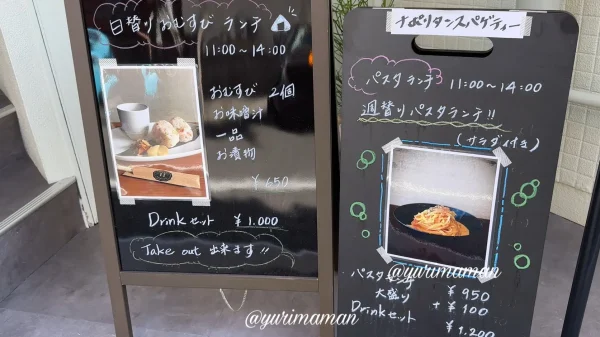 日替り おむすび ランチ
11:00~14:00
おむすび 2個
お味噌汁
一品
お漬物
¥650
Drinkセット ¥1.000
Take out 出来ます!!
@yurimaman
ナポリタンスパゲティー
パスタランチ 11:00~14:00
週替りパスタランチ!!
(サラダ付き)
@yurimaman
パスタ
¥950
大盛り +¥100
Drinkセット ¥1.200